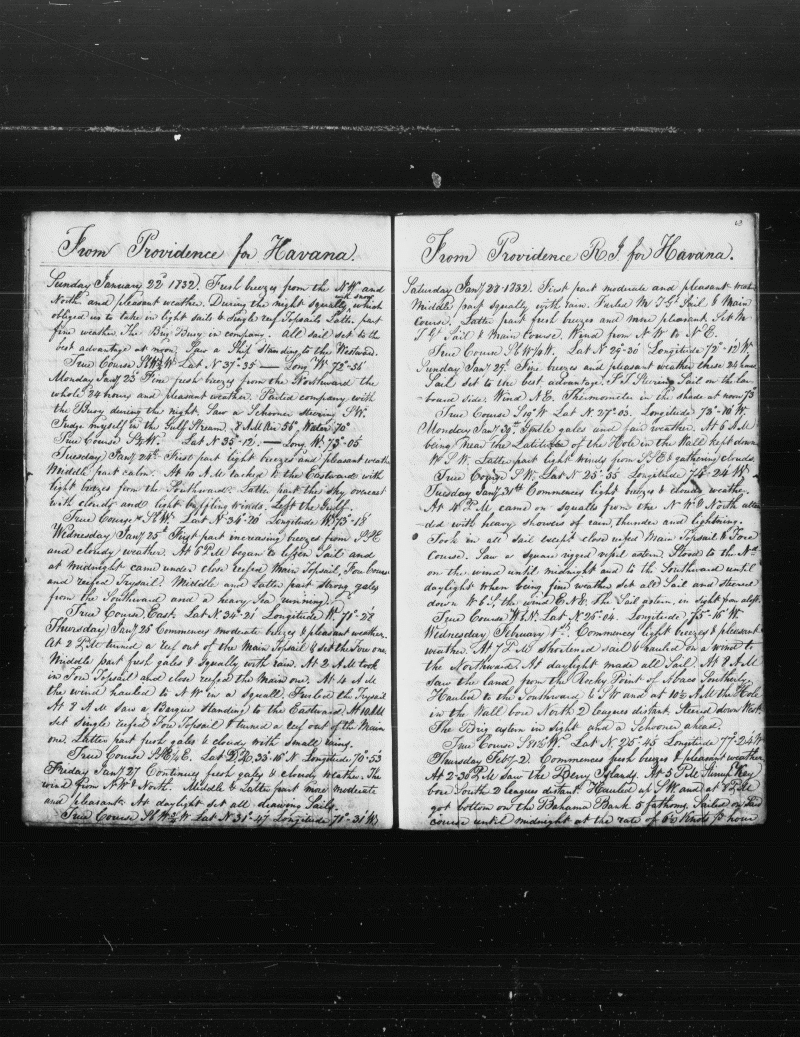 From Providence for Havana.
Sunday January 22d 1832) Fresh breezes from the N.W. and
North, and pleasant weather. During the night squally with snow, which
obliged us to take in light sails & Single reef Topsails Latter part
fine weather The Brig Busy in company. All sail set to the
best advantage at noon. Saw a Ship Standing to the Westward.
True Course Lat N 37-35 — Long W. 72-34
Monday Jany 23d Fine fresh breezes from the Westward the
whole 24 hours and pleasant weather. Parted company with
the Busy during the night. Saw a Schooner steering SW.
Judge myself in the Gulf Stream. 8 AM Air 56° Water 70°
True Course Lat N 35-12. — Long W. 73-05
Tuesday Jany 24th First part light breezes and pleasant weather
Middle part calm. At 10 AM tacked to the Eastward with
light breezes from the Southward. Latter part the sky overcast
with cloudy and light baffling winds. Left the Gulf.
True Course Lat N 34-20 Longitude W. 73-18
Wednesday Jany 25th First part increasing breezes from
and cloudy weather. At 5 PM began to lessen Sail and
at midnight came under close reefed Main Topsail, Fou Course
and reefed Trysail. Middle and Latter part strong gales
from the Southward and a heavy Sea running.
True Course East. Lat N. 34-21 Longitude W. 71-22
Thursday Jany 26 Commences moderate breezes & pleasant weather.
At 2 PM turned a reef out of the Main Topsail & Set the Fou one.
Middle part fresh gales & Squally with rain. At 2 AM took
in Fou Topsail and close reefed the Main one. At 4 AM
the wind hauled to NW in a Squall. Furled the Trysail
At 8 AM Saw a Barque Standing to the Eastward. At 10 AM
Set single reefed Fou Topsail & turned a reef out of the Main
one. Latter part fresh gales & cloudy with small rains.
True Course Lat 33-15 N. Longitude 70-53
Friday Jany 27 Continues fresh gales & cloudy weather. The
wind from NW & North. Middle & Latter part more moderate
and pleasant. At daylight set all drawing Sails.
True Course Lat N 31-47 Longitude 71-31 W.
63
From Providence R.I. for Havana.
Saturday Jany 28 1832. First part moderate and pleasant weath
Middle part squally with rain. Furled M T.G. Sail & Main
Course. Latter part fresh breezes and more pleasant. Set M
T.G. Sail & Main Course. Wind from NW to NE.
True Course Lat N. 29-20 Longitude 72-12 W.
Sunday Jany 29. Fine breezes and pleasant weather these 24 hours
Sail set to the best advantage. Sail on the lar-
board side. Wind NE. Thermometer in the shade at noon 73°
True Course Lat N. 27-03. Longitude 73-16 W.
Monday Jany 30th Gentle gales and fair weather. At 6 AM
being near the Latitude of the Hole in the Wall kept down
W S W. Latter part light winds from & gathering clouds.
True Course SW. Lat N 25-55 Longitude 74-24 W.
Tuesday Jany 31st Commences light breezes & cloudy weathr.
At 4 PM came on squalls from the NW & North atten
ded with heavy showers of rain, thunder and lightning.
Took in all sail except close reefed Main Topsail & Fore
Course. Saw a square rigged vessel astern. Stood to the Nd
on the wind until midnight and to the Southward until
daylight when being fine weather set all Sail and steered
down W.b.S, the wind ENE. The Sail astern, in sight from aloft.
True Course Lat N. 25-04. Longitude 75-15 W.
Wednesday February 1st. Commences light breezes & pleasant
weather. At 7 PM Shortened sail & hauled on a wind to
the Northward. At daylight made all Sail. At 8 AM
saw the land from the Rocky Point of Abaco Southerly.
Hauled to the Southward & SW and at 10½ AM the Hole
in the Wall bore North 2 leagues distant. Steered down West.
The Brig astern in sight and a Schooner ahead.
True Course Lat. N. 25-45 Longitude 77-24 W
Thursday Feby 2. Commences fresh breezes & pleasant weather
At 2-30 PM saw the Berry Islands. At 5 PM Stirrup Key
bore South 2 leagues distant. Hauled up SW and at 8 PM
got bottom on the Bahama Bank 5 fathoms. Sailed on
course until midnight at the rate of 6½ Knots pr hour